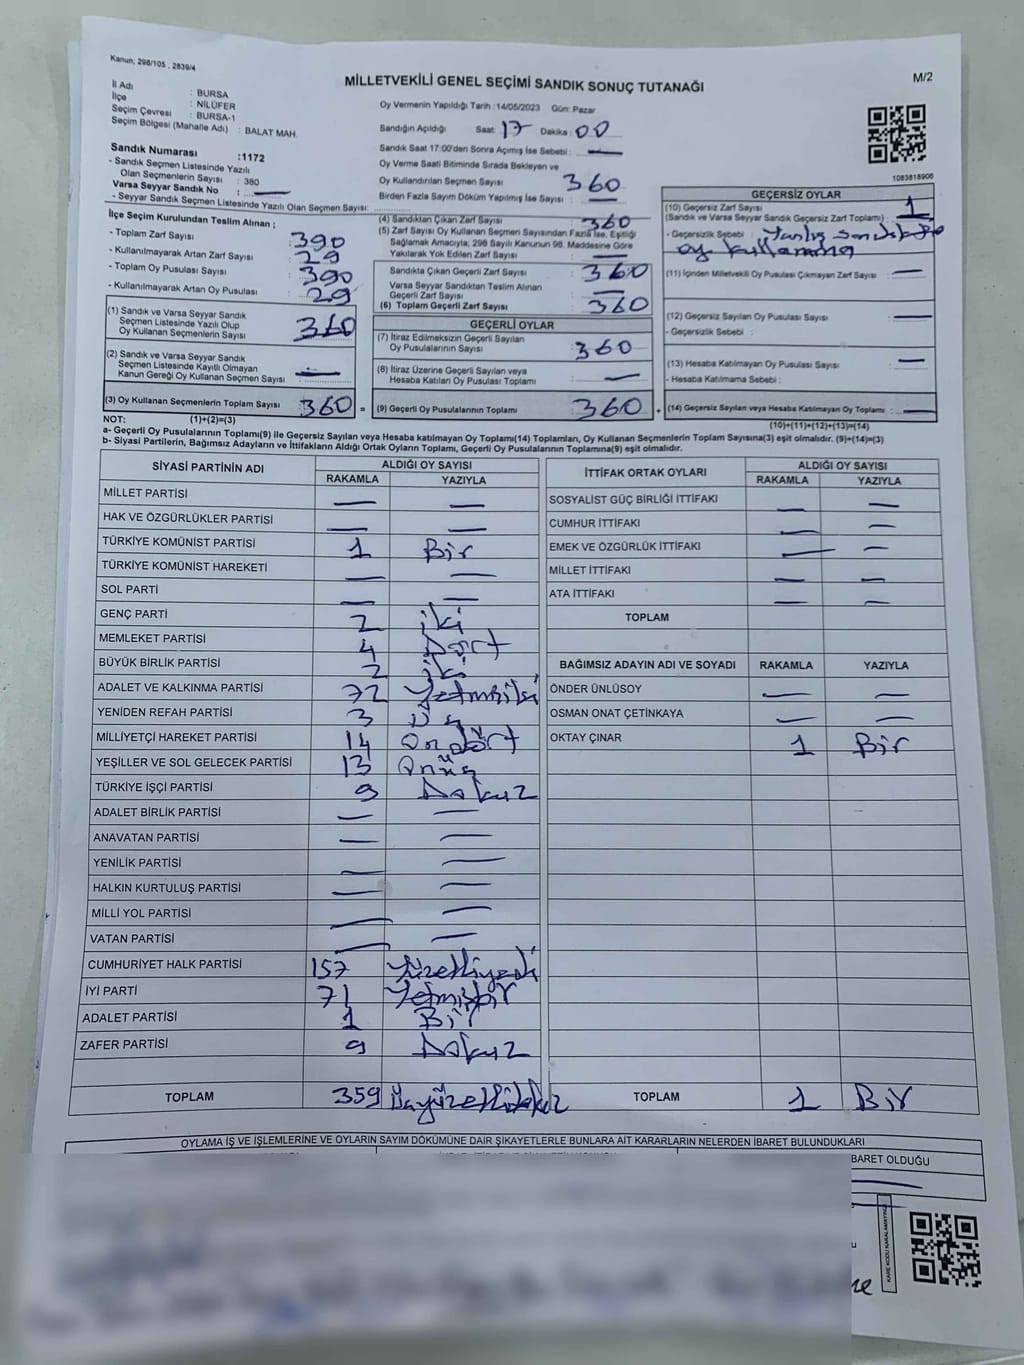 Kanun; 298/105 . 2839/4
MİLLETVEKİLİ GENEL SEÇİMİ SANDIK SONUÇ TUTANAĞI
M/2
İl Adı : BURSA
İlçe : NİLÜFER
Seçim Çevresi : BURSA-1
Seçim Bölgesi (Mahalle Adı) : BALAT MAH.
Sandık Numarası :1172
- Sandık Seçmen Listesinde Yazılı
Olan Seçmenlerin Sayısı : 380
Varsa Seyyar Sandık No : —
- Seyyar Sandık Seçmen Listesinde Yazılı Olan Seçmen Sayısı:
Oy Vermenin Yapıldığı Tarih :14/05/2023 Gün: Pazar
Sandığın Açıldığı Saat: 17 Dakika: 00
Sandık Saat 17:00'den Sonra Açımış İse Sebebi : —
Oy Verme Saati Bitiminde Sırada Bekleyen ve
Oy Kullandırılan Seçmen Sayısı 360
Birden Fazla Sayım Döküm Yapılmış İse Sayısı : —
1083818906
İlçe Seçim Kurulundan Teslim Alınan ;
- Toplam Zarf Sayısı : 390
- Kullanılmayarak Artan Zarf Sayısı : 29
- Toplam Oy Pusulası Sayısı : 390
- Kullanılmayarak Artan Oy Pusulası : 29
(1) Sandık ve Varsa Seyyar Sandık
Seçmen Listesinde Yazılı Olup
Oy Kullanan Seçmenlerin Sayısı : 360
(2) Sandık ve Varsa Seyyar Sandık
Seçmen Listesinde Kayıtlı Olmayan
Kanun Gereği Oy Kullanan Seçmen Sayısı : —
(3) Oy Kullanan Seçmenlerin Toplam Sayısı : 360 =
(4) Sandıktan Çıkan Zarf Sayısı : 360
(5) Zarf Sayısı Oy Kullanan Seçmen Sayısından Fazla İse, Eşitliği
Sağlamak Amacıyla, 298 Sayılı Kanunun 98. Maddesine Göre
Yakılarak Yok Edilen Zarf Sayısı : —
Sandıkta Çıkan Geçerli Zarf Sayısı : 360
Varsa Seyyar Sandıktan Teslim Alınan
Geçerli Zarf Sayısı : —
(6) Toplam Geçerli Zarf Sayısı : 360
GEÇERLİ OYLAR
(7) İtiraz Edilmeksizin Geçerli Sayılan
Oy Pusulalarının Sayısı : 360
(8) İtiraz Üzerine Geçerli Sayılan veya
Hesaba Katılan Oy Pusulası Toplamı : —
(9) Geçerli Oy Pusulalarının Toplamı : 360 +
GEÇERSİZ OYLAR
(10) Geçersiz Zarf Sayısı
(Sandık ve Varsa Seyyar Sandık Geçersiz Zarf Toplamı) : 1
- Geçersizlik Sebebi : Yanlış sandıkta
oy kullanma
(11) İçinden Milletvekili Oy Pusulası Çıkmayan Zarf Sayısı : —
(12) Geçersiz Sayılan Oy Pusulası Sayısı : —
- Geçersizlik Sebebi :
(13) Hesaba Katılmayan Oy Pusulası Sayısı : —
- Hesaba Katılmama Sebebi :
(14) Geçersiz Sayılan veya Hesaba Katılmayan Oy Toplamı : —
NOT: (1)+(2)=(3) (10)+(11)+(12)+(13)=(14)
a- Geçerli Oy Pusulalarının Toplamı(9) ile Geçersiz Sayılan veya Hesaba katılmayan Oy Toplamı(14) Toplamları, Oy Kullanan Seçmenlerin Toplam Sayısına(3) eşit olmalıdır. (9)+(14)=(3)
b- Siyasi Partilerin, Bağımsız Adayların ve İttifakların Aldığı Ortak Oyların Toplamı, Geçerli Oy Pusulalarının Toplamına(9) eşit olmalıdır.
SİYASİ PARTİNİN ADI ALDIĞI OY SAYISI
RAKAMLA YAZIYLA
MİLLET PARTİSİ — —
HAK VE ÖZGÜRLÜKLER PARTİSİ — —
TÜRKİYE KOMÜNİST PARTİSİ 1 Bir
TÜRKİYE KOMÜNİST HAREKETİ — —
SOL PARTİ — —
GENÇ PARTİ 2 iki
MEMLEKET PARTİSİ 4 Dört
BÜYÜK BİRLİK PARTİSİ 2 iki
ADALET VE KALKINMA PARTİSİ 72 Yetmişiki
YENİDEN REFAH PARTİSİ 3 Üç
MİLLİYETÇİ HAREKET PARTİSİ 14 Ondört
YEŞİLLER VE SOL GELECEK PARTİSİ 13 Onüç
TÜRKİYE İŞÇİ PARTİSİ 9 Dokuz
ADALET BİRLİK PARTİSİ — —
ANAVATAN PARTİSİ — —
YENİLİK PARTİSİ — —
HALKIN KURTULUŞ PARTİSİ — —
MİLLİ YOL PARTİSİ — —
VATAN PARTİSİ — —
CUMHURİYET HALK PARTİSİ 157 Yüzelliyedi
İYİ PARTİ 71 Yetmişbir
ADALET PARTİSİ 1 Bir
ZAFER PARTİSİ 9 Dokuz
TOPLAM 359 Üçyüzellidokuz
İTTİFAK ORTAK OYLARI ALDIĞI OY SAYISI
RAKAMLA YAZIYLA
SOSYALİST GÜÇ BİRLİĞİ İTTİFAKI — —
CUMHUR İTTİFAKI — —
EMEK VE ÖZGÜRLÜK İTTİFAKI — —
MİLLET İTTİFAKI — —
ATA İTTİFAKI — —
TOPLAM
BAĞIMSIZ ADAYIN ADI VE SOYADI RAKAMLA YAZIYLA
ÖNDER ÜNLÜSOY — —
OSMAN ONAT ÇETİNKAYA — —
OKTAY ÇINAR 1 Bir
TOPLAM 1 Bir
OYLAMA İŞ VE İŞLEMLERİNE VE OYLARIN SAYIM DÖKÜMÜNE DAİR ŞİKAYETLERLE BUNLARA AİT KARARLARIN NELERDEN İBARET BULUNDUKLARI
BARET OLDUĞU
KARE KODU KARALAMAYINIZ